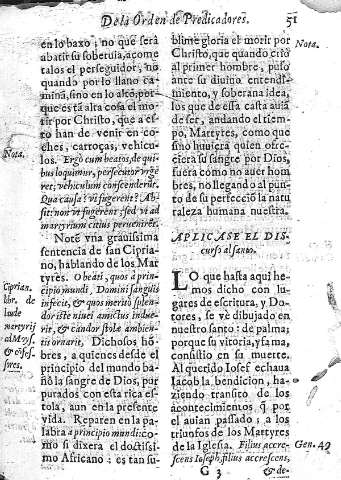 De la Orden de Predicadores. 51
en lo baxo; no que será
abatir su soberuia, acome
talos el perseguidor, no
quando por lo llano ca
mina, sino en lo alto, por
que es tã alta cosa el mo
rir por Christo, que a es
to han de venir en co
ches, carroças, vehicu
los. Ergò cum beatos, de qui
bus loquimur, persecutor vrge
ret; vehiculum conscenderũt.
Qua causa? vt fugerent? Ab
sit: non vt fugerent; sed vt ad
martyrium citius peruenirẽt.
Nota.
Notè vna grauissima
sentencia de san Cipria
no, hablando de los Mar
tyres. O beati, quos à prin
cipio mundi, Domini sanguis
infecit, & quos meritò splen-
dor iste niuei amictus indue-
rit, & candor stolæ ambien
tis ornarit. Dichosos hõ
bres, a quienes desde el
principio del mundo ba
ñò la sangre de Dios, pur
purados con esta rica es
tola, aun en la presente
vida. Reparen en la pa
labra à principio mundi: co
mo si dixera el doctissi
mo Africano: es tan su-
Ciprian.
libr. de
lude
martyrij
ad Moys.
& cõfes-
sores.
blime gloria el morir por
Christo, que quando criò
al primer hombre, puso
ante su diuino entendi-
miento, y soberana idea,
los que de esta casta auiã
de ser, andando el tiem
po, Martyres, como que
sino huuiera quien ofre
ciera su sangre por Dios,
fuera como no auer hom
bres, no llegando al pun
to de su perfecciõ la natu
raleza humana nuestra.
Nota.
APLICASE EL DIS-
curso al santo.
LO que hasta aqui he
mos dicho con lu-
gares de escritura, y Do-
tores, se vè dibujado en
nuestro santo: de palma;
porque su vitoria, y fama,
consistio en su muerte.
Al querido Iosef echaua
Iacob la bendicion, ha-
ziendo transito de los
acontecimientos q̃ por
el auian passado; a los
triunfos de los Martyres
de la Iglesia. Filius accre-
scens Ioseph, filius accrescens,
Gen. 49
G 3 & de-